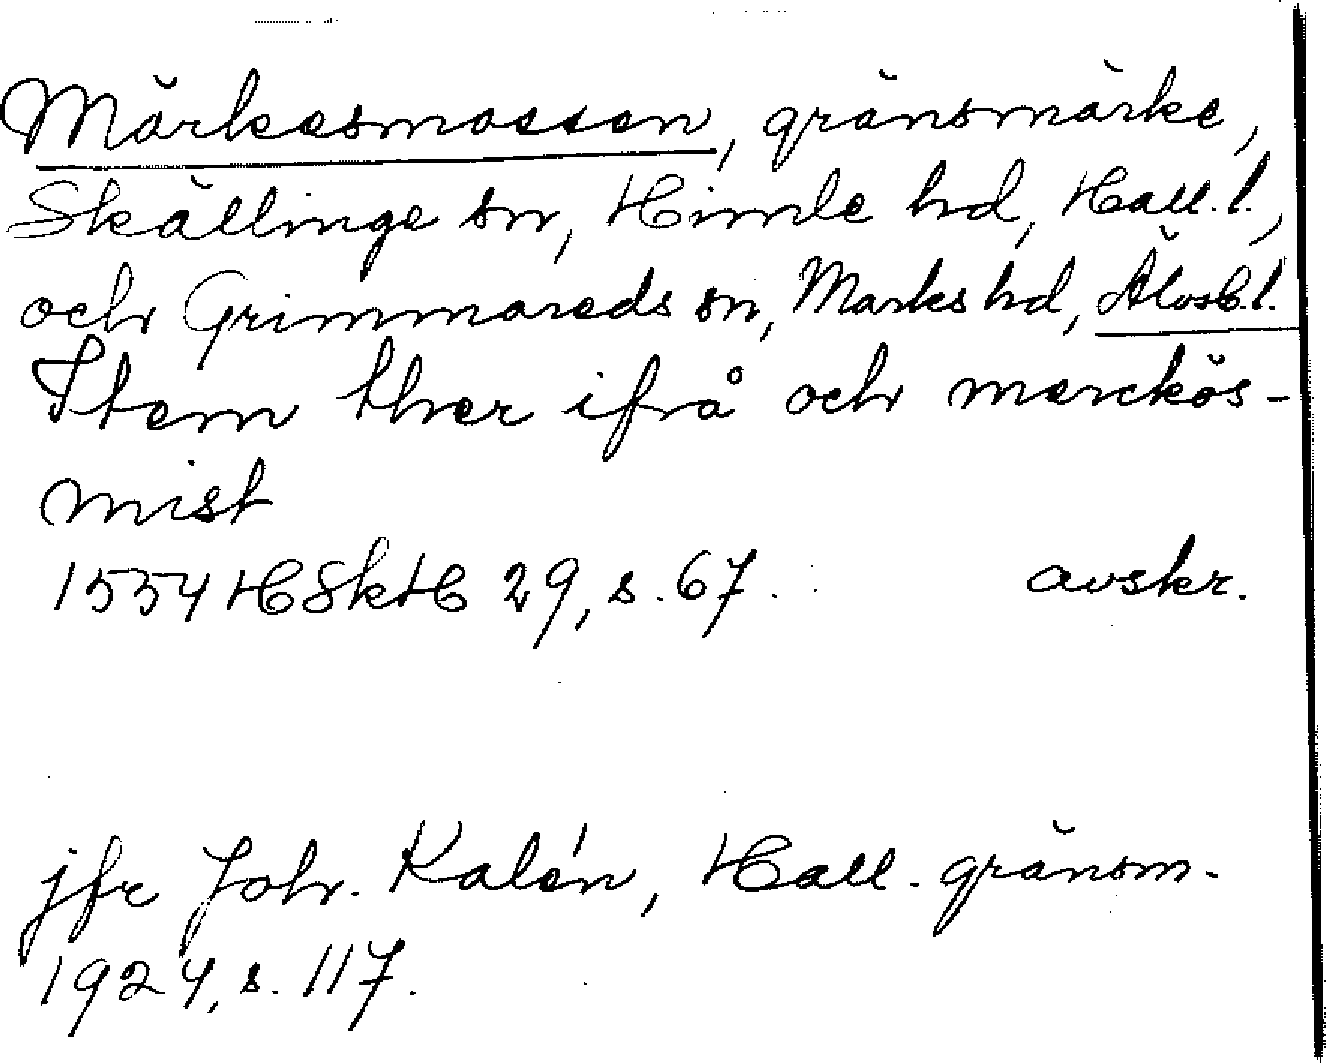 Märkesmossen, gränsmärke,
Skällinge sn, Himle hd, Hall. l.,
och Grimmareds sn, Marks hd, Älvsb. l.
Item ther ifrå och merckös-
mist
1554 HSkH 29, s. 67. avskr.
jfr Joh. Kalén, Hall. gränsm.
1924, s. 117.